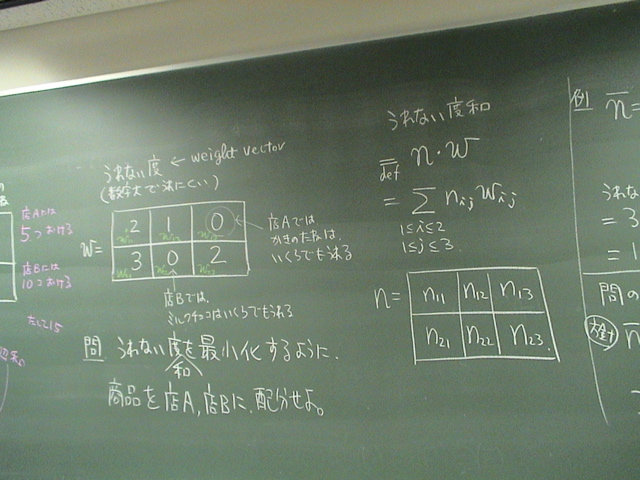 店Aには
5つおける
店Bには
10コおける
たして15
うれない度 ← weight vector
(数字大で売れにくい)
w =
2 1 0
3 0 2
店Aでは
かきのたねは、
いくらでも売る
店Bでは、
ミルクチョコはいくらでもうれる
問 うれない度を最小化するように、
和
商品を店A, 店Bに、配分せよ。
うれない度和
=
def
n・w
= Σ nij wij
1≤i≤2
1≤j≤3
n =
n11 n12 n13
n21 n22 n23
例 n̄ =
うれな
= 3
= 1
問の
n̄